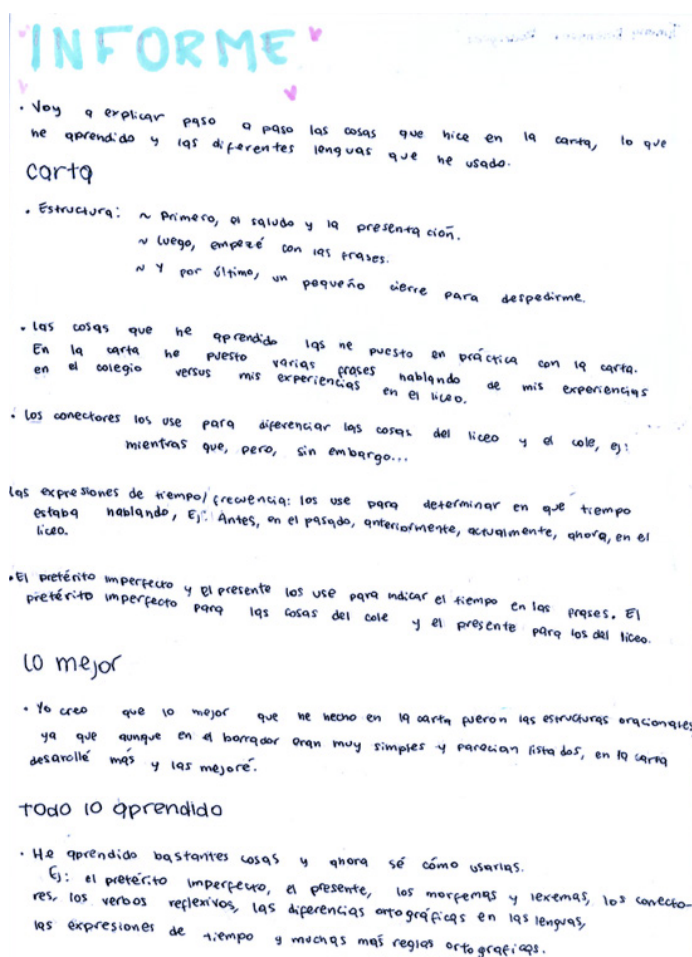 INFORME
• Voy a explicar paso a paso las cosas que hice en la carta, lo que
he aprendido y las diferentes lenguas que he usado.
carta
• Estructura: ~ Primero, el saludo y la presentación.
~ Luego, empezé con las frases.
~ Y por último, un pequeño cierre para despedirme.
• Las cosas que he aprendido las he puesto en práctica con la carta.
En la carta he puesto varias frases hablando de mis experiencias
en el colegio versus mis experiencias en el liceo.
• Los conectores los use para diferenciar las cosas del liceo y el cole, ej:
mientras que, pero, sin embargo...
Las expresiones de tiempo/frecuencia: los use para determinar en que tiempo
estaba hablando, Ej: Antes, en el pasado, anteriormente, actualmente, ahora, en el
liceo.
• El pretérito imperfecto y el presente los use para indicar el tiempo en las frases. El
pretérito imperfecto para las cosas del cole y el presente para los del liceo.
Lo mejor
• Yo creo que lo mejor que he hecho en la carta fueron las estructuras oracionales
ya que aunque en el borrador eran muy simples y parecian listados, en la carta
desarollé más y las mejoré.
Todo lo aprendido
• He aprendido bastantes cosas y ahora sé cómo usarlas.
Ej: el pretérito imperfecto, el presente, los morfemas y lexemas, los conecto-
res, los verbos reflexivos, las diferencias ortográficas en las lenguas,
las expresiones de tiempo y muchas más reglas ortograficas.